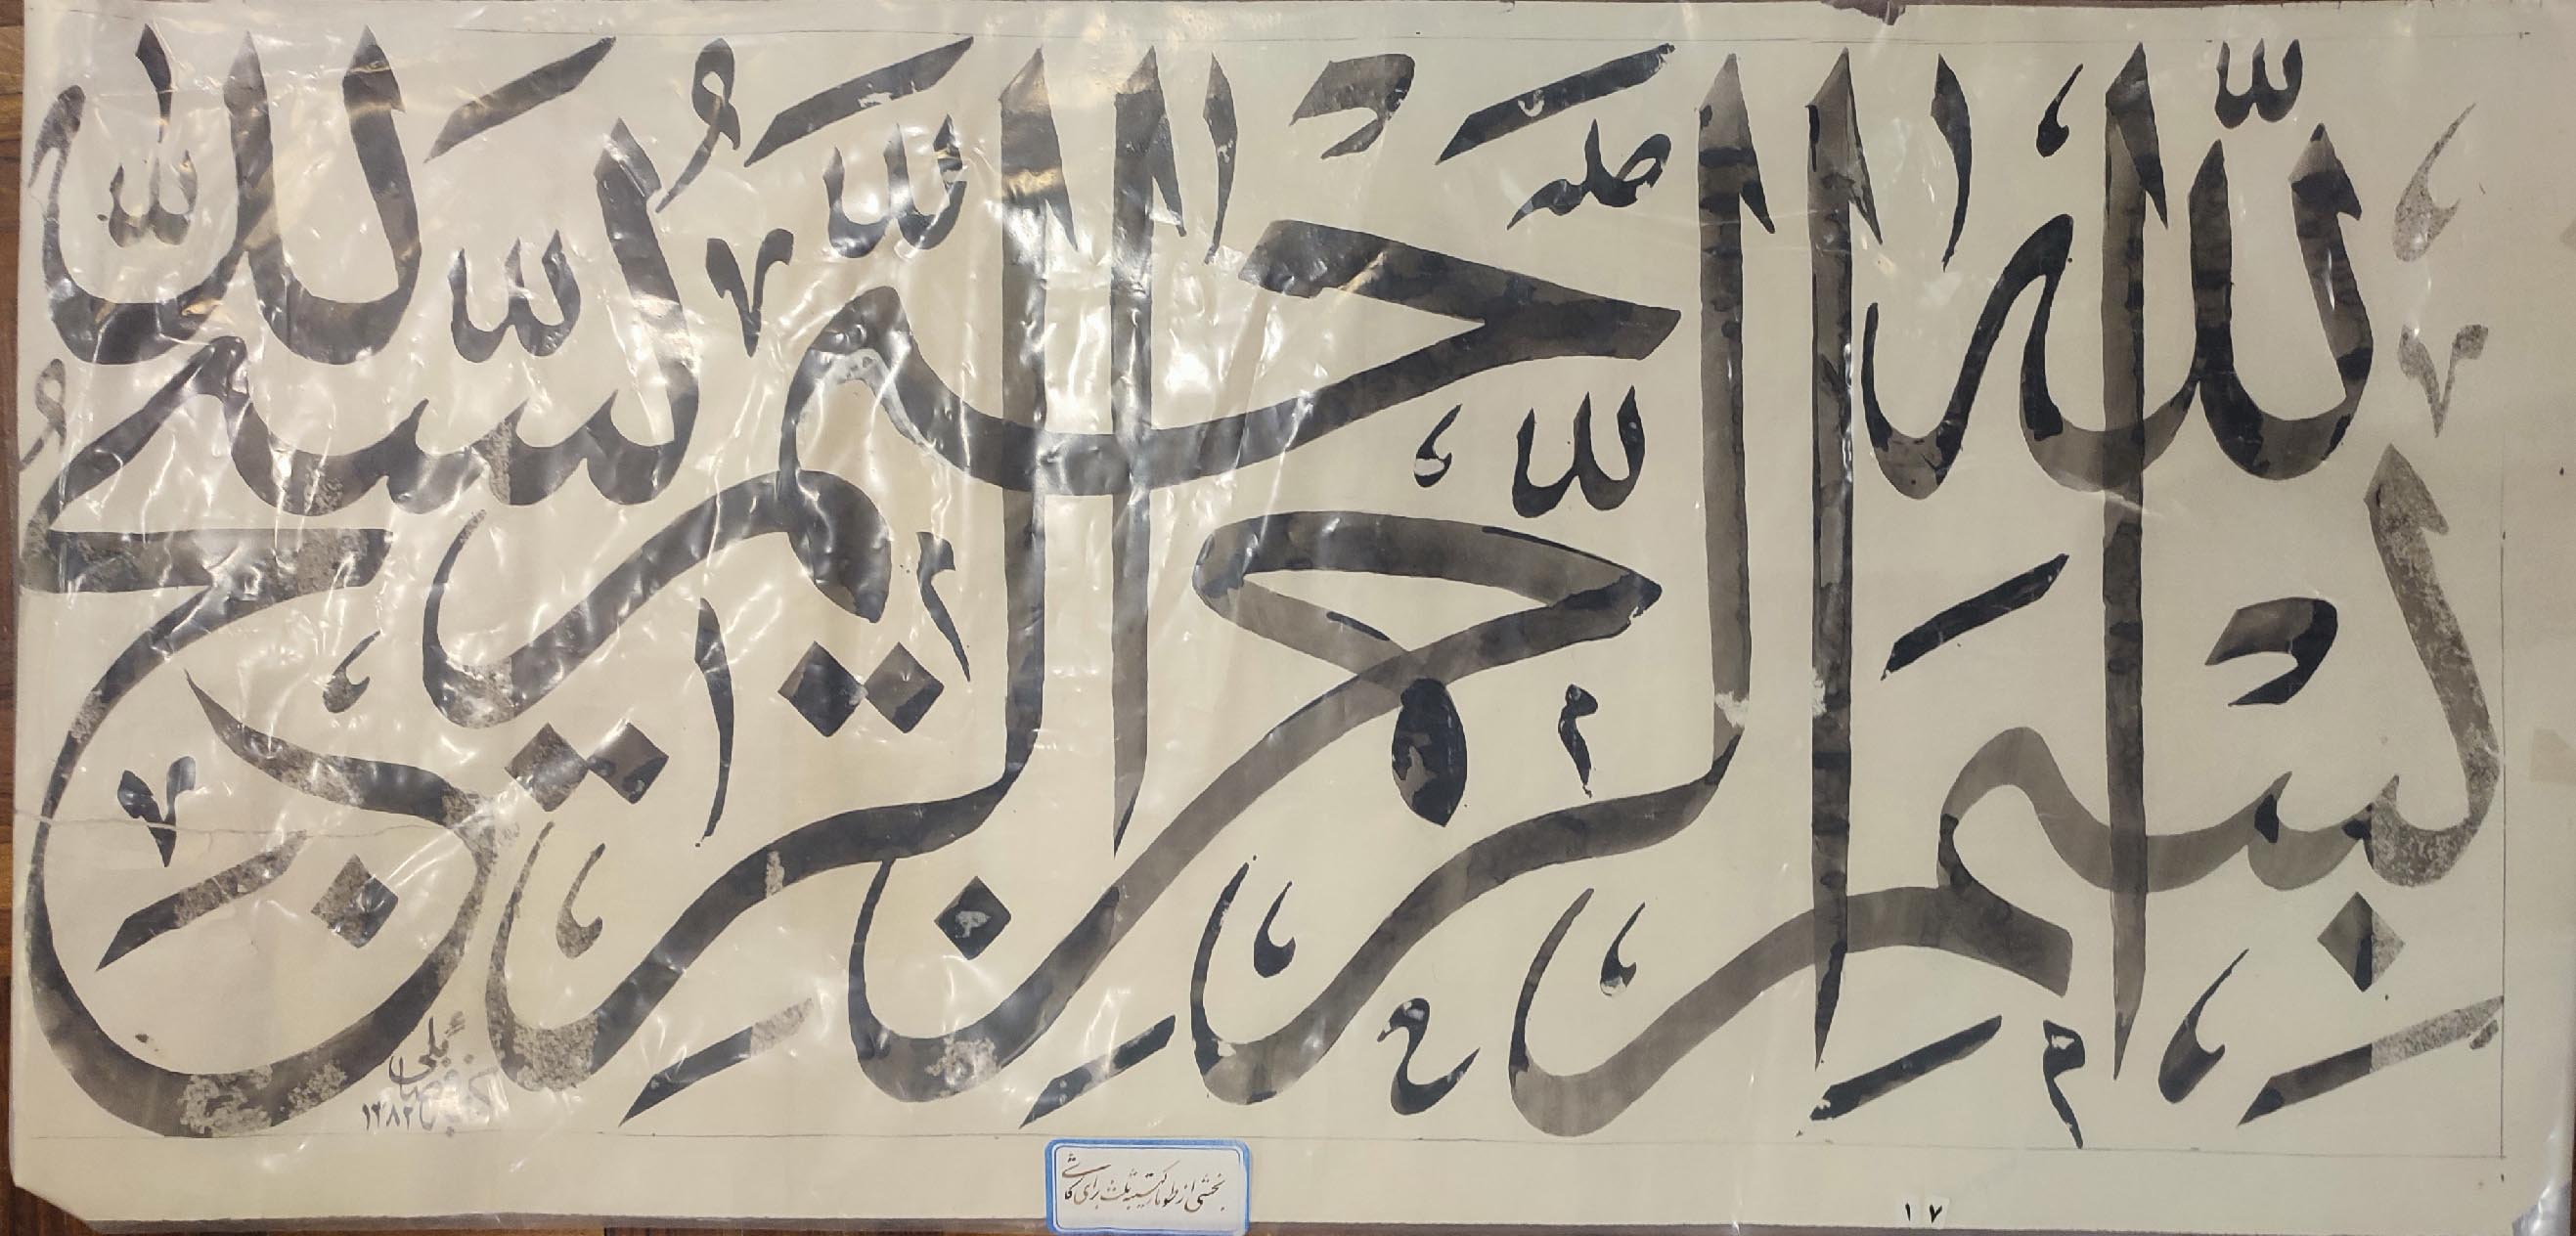 بِسْمِ اللّٰهِ الرَّحْمٰنِ الرَّحِيمِ يُسَبِّحُ لِلّٰهِ
۱۳۸۲
بخشی از طومار کتیبه ثلث برای کاشی
۱۷